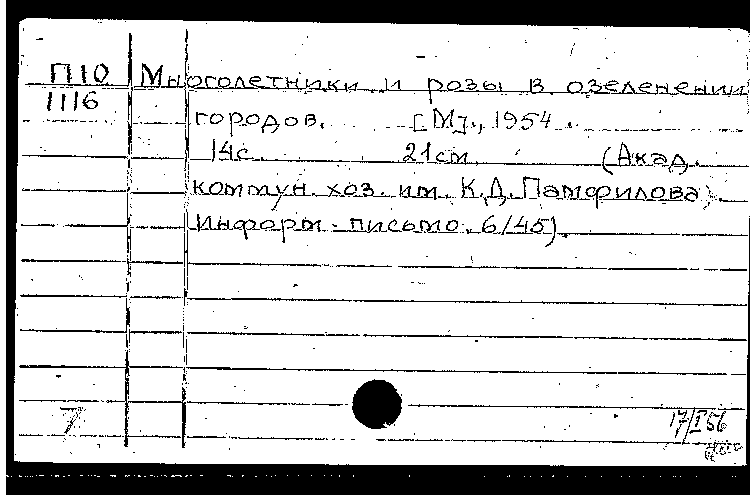 П10 Многолетники и розы в озеленении
1116 городов. [М]., 1954.
14с. 21см. (Акад.
коммун. хоз. им. К.Д. Памфилова).
Информ. письмо. 6/45).
7 17/I 56